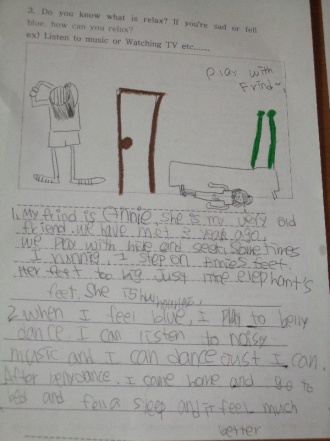 3. Do you know what is relax? If you're sad or fell
blue, how can you relax?
ex) Listen to music or Watching TV etc......
Play with
Frind~
1. My frind is Annie, she is my very old
friend. we have met 2 year ago,
we play with hide and seek. Some times
I runnig, I step on Annie's feet.
Her feet to big just like elephant's
feet. She is
2. when I feel blue, I play to belly
dance. I can listen to noisy
music and I can dance Just I can.
After bellydance. I came home and go to
bed and fell a sleep and it feel much
better